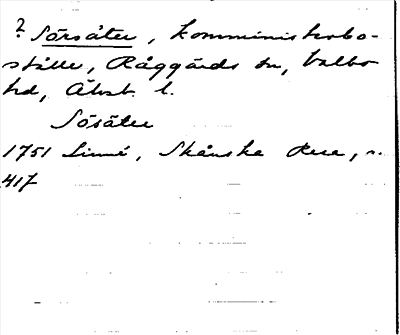 ? Sörsäter, Komministerbo-
ställe, Råggärds sn, Valbo
hd, Älvsb. l.
Sösäter
1751 Linné, Skånska Resa, s.
417